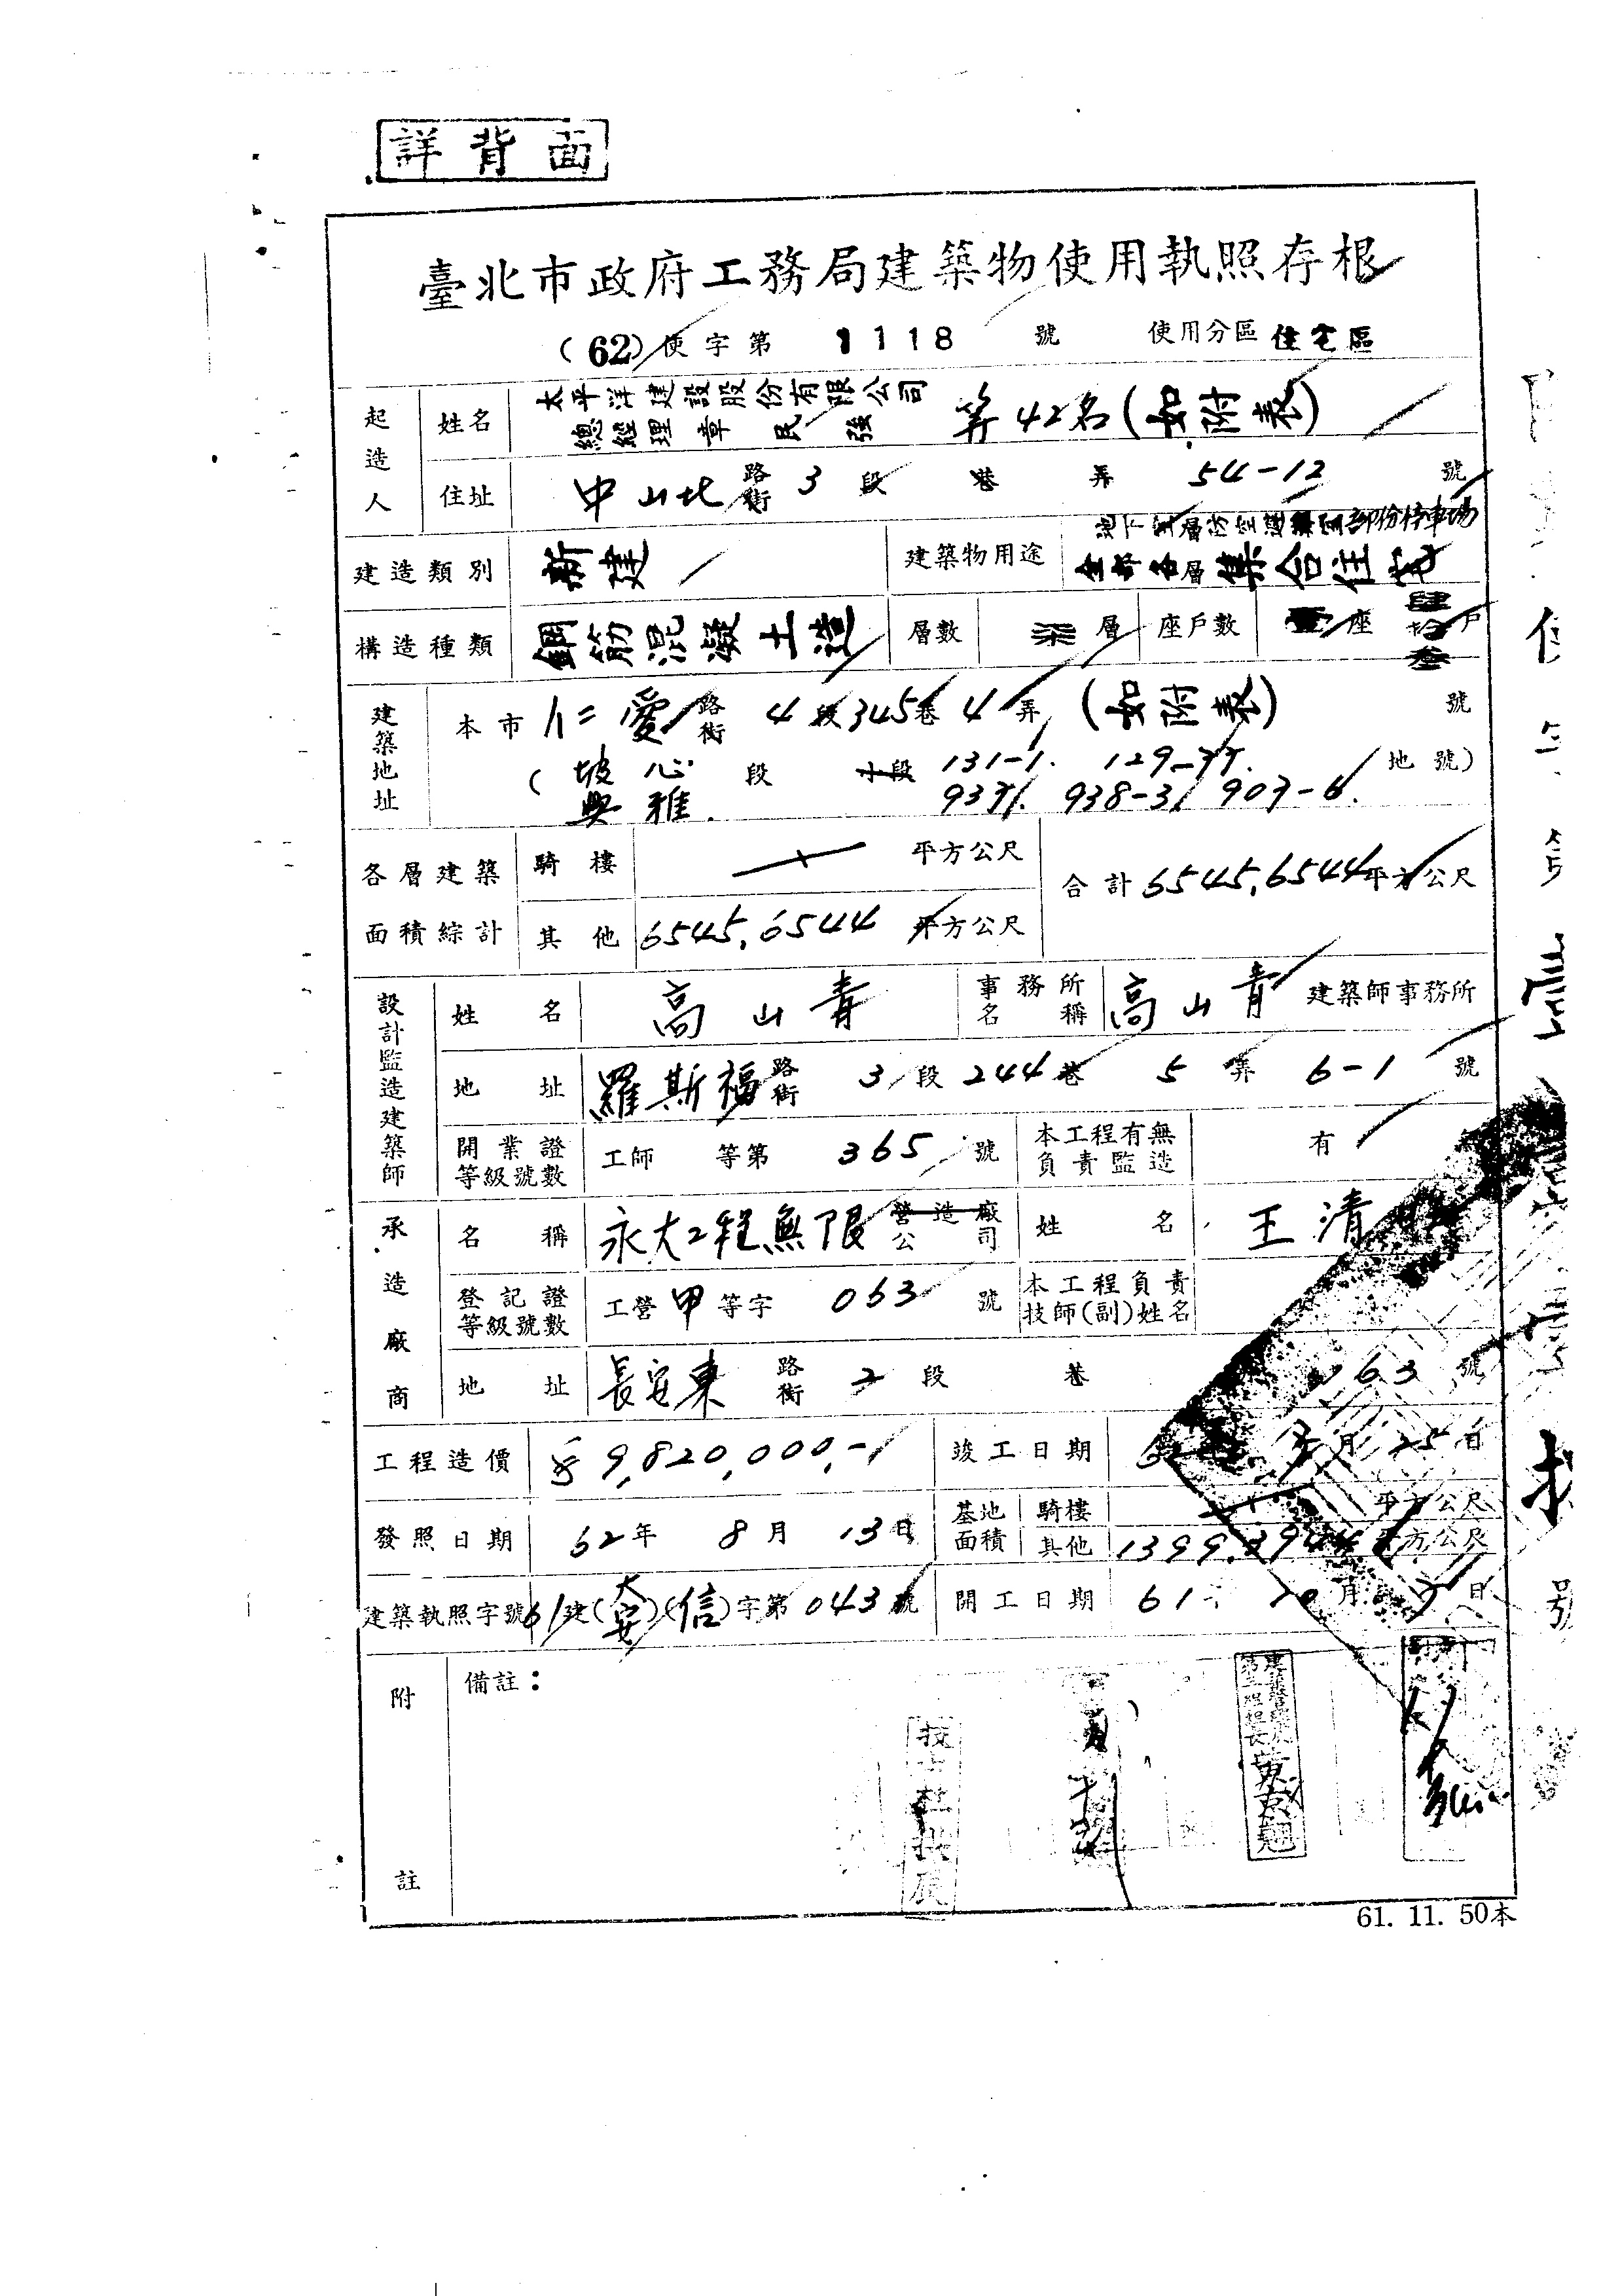 詳背面
臺北市政府工務局建築物使用執照存根
(62)使字第 1118 號 使用分區 住宅區
起造人 姓名 太平洋建設股份有限公司 總經理章民強 等42名(如附表)
住址 中山北路街 3 段 巷 弄 54-12 號
建造類別 新建 建築物用途 地下室層防空避難室部份停車場
全部各層集合住宅
構造種類 鋼筋混凝土造 層數 柒層 座戶數 壹座 肆拾叁戶
建築地址 本市仁愛路街 4段345巷4弄(如附表) 號
(坡心 段 小段 131-1. 地號)
興雅. 938-3.
各層建築面積綜計 騎樓 平方公尺 合計6545.6544平方公尺
其他 6545.6544 平方公尺
設計監造建築師 姓名 高山青 事務所名稱 高山青 建築師事務所
地址 羅斯福路街 3段244巷 5弄 6-1 號
開業證等級號數 工師 等第 365 號 本工程有無負責監造 有
承造廠商 名稱 永大工程無限營造廠公司 姓名 王清
登記證等級號數 工營甲等字 063 號 本工程負責技師(副)姓名
地址 長安東路街 2段 巷 63 號
工程造價 9,820,000,- 竣工日期 月 25日
發照日期 62年 8月 13日 基地面積 騎樓 平方公尺
其他 平方公尺
建築執照字號61建(大安)(信)字第043號 開工日期 61. 月 日
附註 備註:
黃京翹
61. 11. 50本